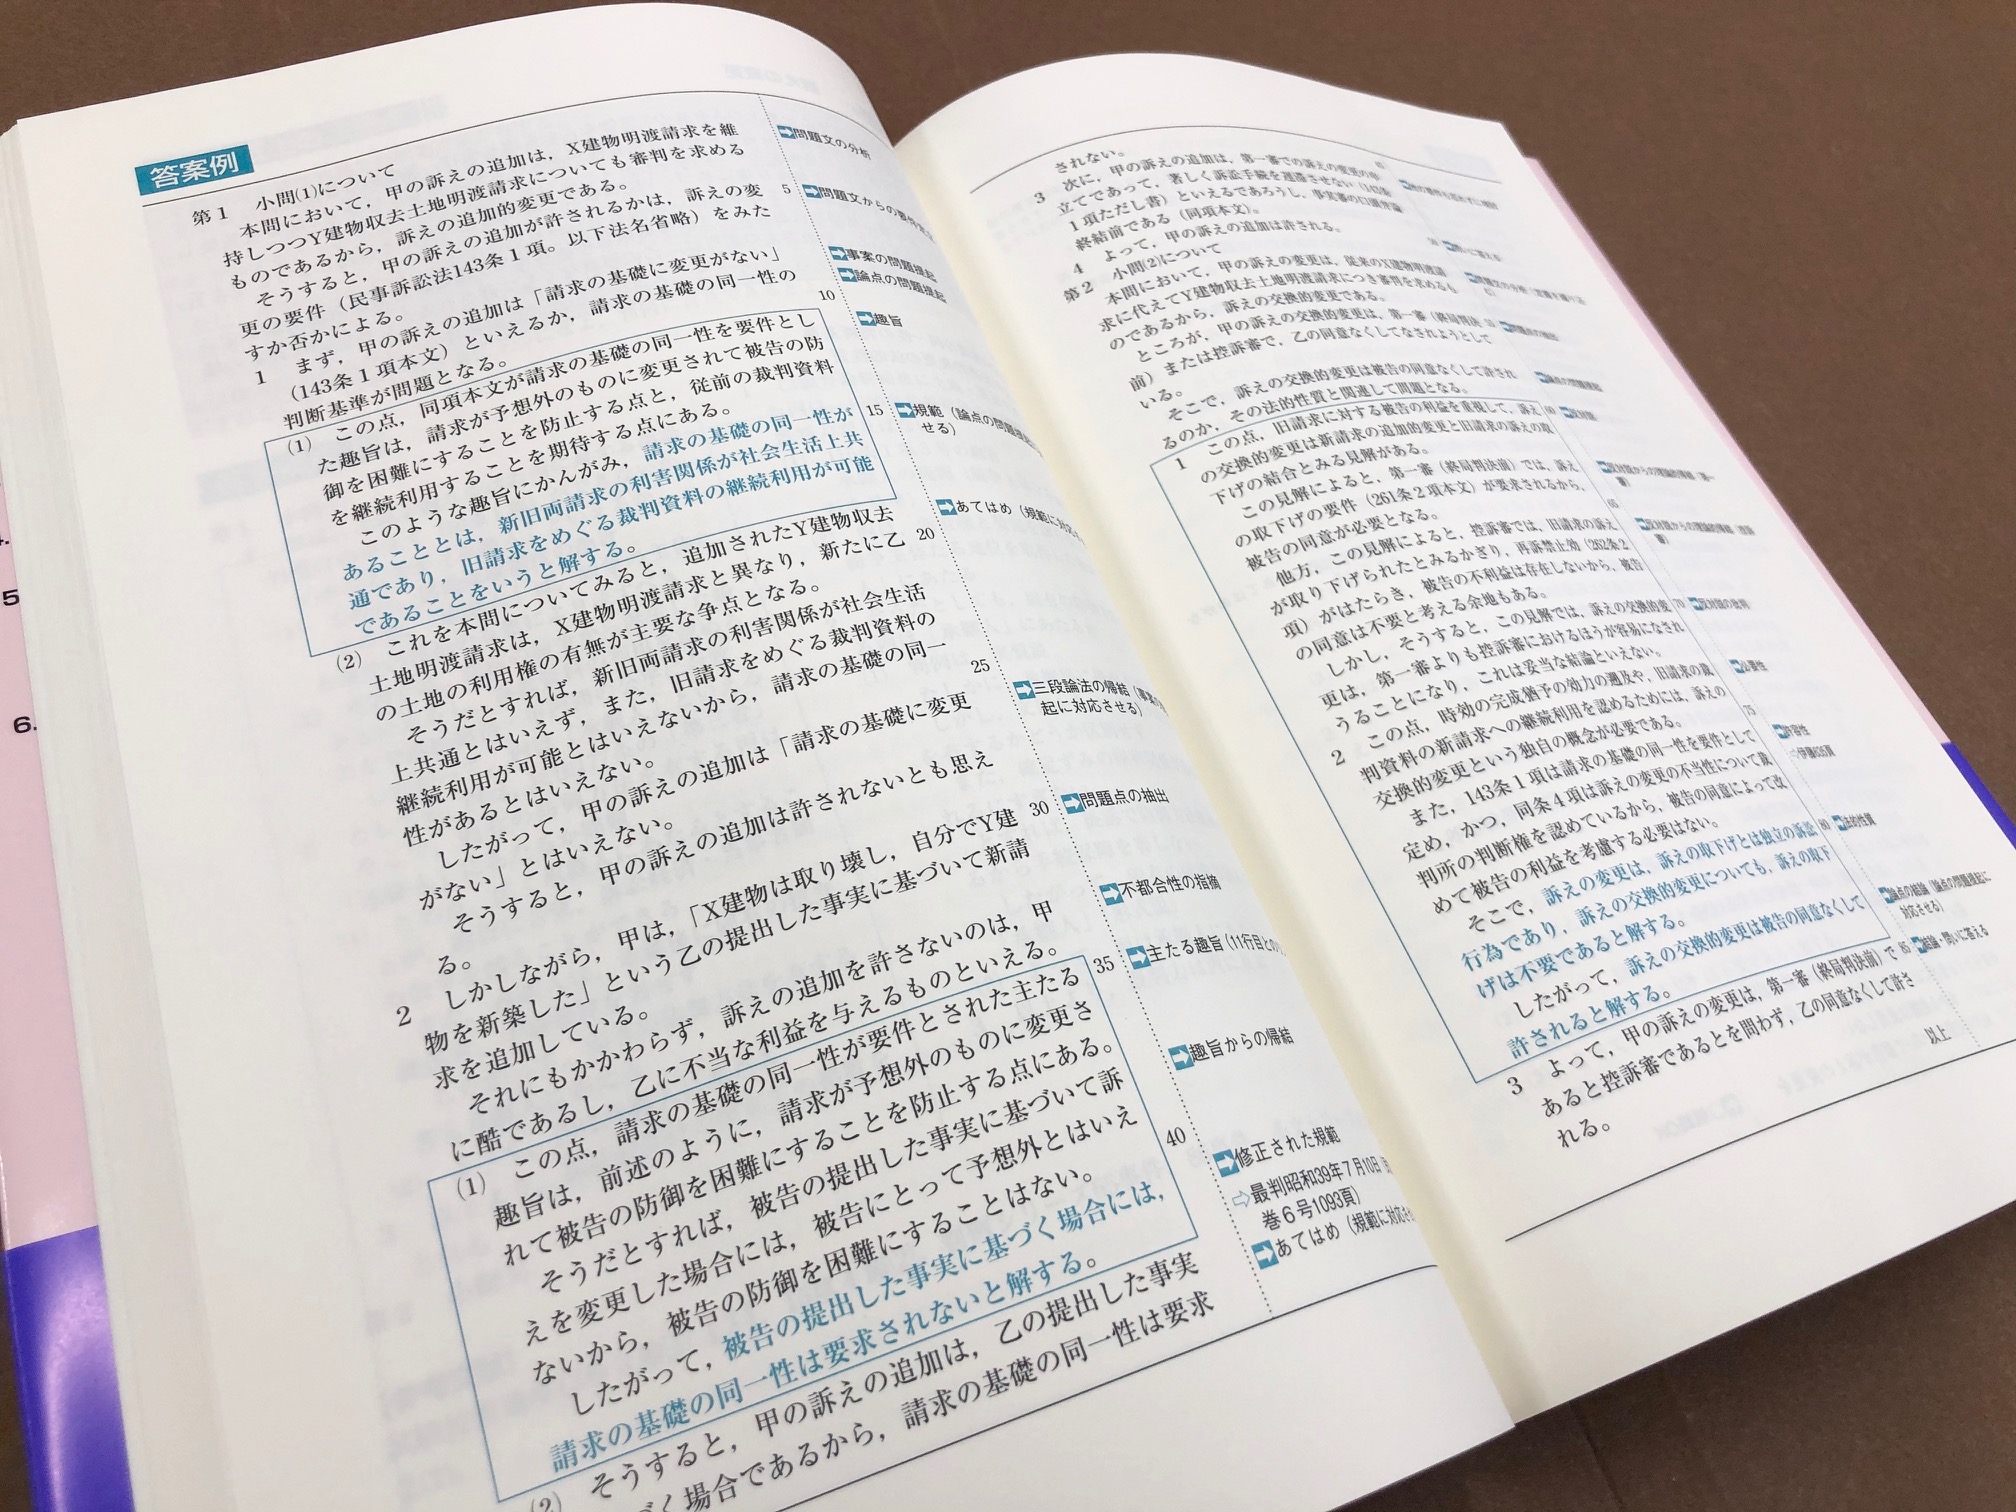 答案例
第1 小問(1)について
本問において，甲の訴えの追加は，X建物明渡請求を維
持しつつY建物収去土地明渡請求についても審判を求める
ものであるから，訴えの追加的変更である。
そうすると，甲の訴えの追加が許されるかは，訴えの変
更の要件（民事訴訟法143条1項。以下法名省略）をみた
すか否かによる。
1 まず，甲の訴えの追加は「請求の基礎に変更がない」
（143条1項本文）といえるか，請求の基礎の同一性の
判断基準が問題となる。
(1) この点，同項本文が請求の基礎の同一性を要件とし
た趣旨は，請求が予想外のものに変更されて被告の防
御を困難にすることを防止する点と，従前の裁判資料
を継続利用することを期待する点にある。
このような趣旨にかんがみ，請求の基礎の同一性が
あることとは，新旧両請求の利害関係が社会生活上共
通であり，旧請求をめぐる裁判資料の継続利用が可能
であることをいうと解する。
(2) これを本問についてみると，追加されたY建物収去
土地明渡請求は，X建物明渡請求と異なり，新たに乙
の土地の利用権の有無が主要な争点となる。
そうだとすれば，新旧両請求の利害関係が社会生活
上共通とはいえず，また，旧請求をめぐる裁判資料の
継続利用が可能とはいえないから，請求の基礎の同一
性があるとはいえない。
したがって，甲の訴えの追加は「請求の基礎に変更
がない」とはいえない。
そうすると，甲の訴えの追加は許されないとも思え
る。
2 しかしながら，甲は，「X建物は取り壊し，自分でY建
物を新築した」という乙の提出した事実に基づいて新請
求を追加している。
それにもかかわらず，訴えの追加を許さないのは，甲
に酷であるし，乙に不当な利益を与えるものといえる。
(1) この点，請求の基礎の同一性が要件とされた主たる
趣旨は，前述のように，請求が予想外のものに変更さ
れて被告の防御を困難にすることを防止する点にある。
そうだとすれば，被告の提出した事実に基づいて訴
えを変更した場合には，被告にとって予想外とはいえ
ないから，被告の防御を困難にすることはない。
したがって，被告の提出した事実に基づく場合には，
請求の基礎の同一性は要求されないと解する。
(2) そうすると，甲の訴えの追加は，乙の提出した事実
づく場合であるから，請求の基礎の同一性は要求
5
10
15
20
25
30
35
40
問題文の分析
問題文からの
事案の問題提起
論点の問題提起
趣旨
規範（論点の問題提起
せる）
あてはめ（規範に対応
三段論法の帰結（事案
起に対応させる）
問題点の抽出
不都合性の指摘
主たる趣旨（11行目との
趣旨からの帰結
修正された規範
最判昭和39年7月10日
巻6号1093頁）
あてはめ（規範に対応
5
6.
されない。
3 次に，甲の訴えの追加は，第一審での訴えの変更の申
立てであって，著しく訴訟手続を遅滞させない（143条
1項ただし書）といえるであろうし，事実審の口頭弁論
終結前である（同項本文）。
4 よって，甲の訴えの追加は許される。
第2 小問(2)について
本問において，甲の訴えの変更は，従来のX建物明渡請
求に代えてY建物収去土地明渡請求につき審判を求めるも
のであるから，訴えの交換的変更である。
ところが，甲の訴えの交換的変更は，第一審（終局判決
前）または控訴審で，乙の同意なくしてなされようとして
いる。
そこで，訴えの交換的変更は被告の同意なくして許され
るのか，その法的性質と関連して問題となる。
1 この点，旧請求に対する被告の利益を重視して，訴え
の交換的変更は新請求の追加的変更と旧請求の訴えの取
下げの結合とみる見解がある。
この見解によると，第一審（終局判決前）では，訴え
の取下げの要件（261条2項本文）が要求されるから，
被告の同意が必要となる。
他方，この見解によると，控訴審では，旧請求の訴え
が取り下げられたとみるかぎり，再訴禁止効（262条2
項）がはたらき，被告の不利益は存在しないから，被告
の同意は不要と考える余地もある。
しかし，そうすると，この見解では，訴えの交換的変
更は，第一審よりも控訴審におけるほうが容易になされ
うることになり，これは妥当な結論といえない。
2 この点，時効の完成猶予の効力の遡及や，旧請求の裁
判資料の新請求への継続利用を認めるためには，訴えの
交換的変更という独自の概念が必要である。
また，143条1項は請求の基礎の同一性を要件として
定め，かつ，同条4項は訴えの変更の不当性について裁
判所の判断権を認めているから，被告の同意によって改
めて被告の利益を考慮する必要はない。
そこで，訴えの変更は，訴えの取下げとは独立の訴訟
行為であり，訴えの交換的変更についても，訴えの取下
げは不要であると解する。
したがって，訴えの交換的変更は被告の同意なくして
許されると解する。
3 よって，甲の訴えの変更は，第一審（終局判決前）で
あると控訴審であるとを問わず，乙の同意なくして許さ
れる。
以上
65
70
75
80
85
必要性
許容性
法的性質
論点の結論（論点の問題提起に
対応させる）
結論・問いに答える